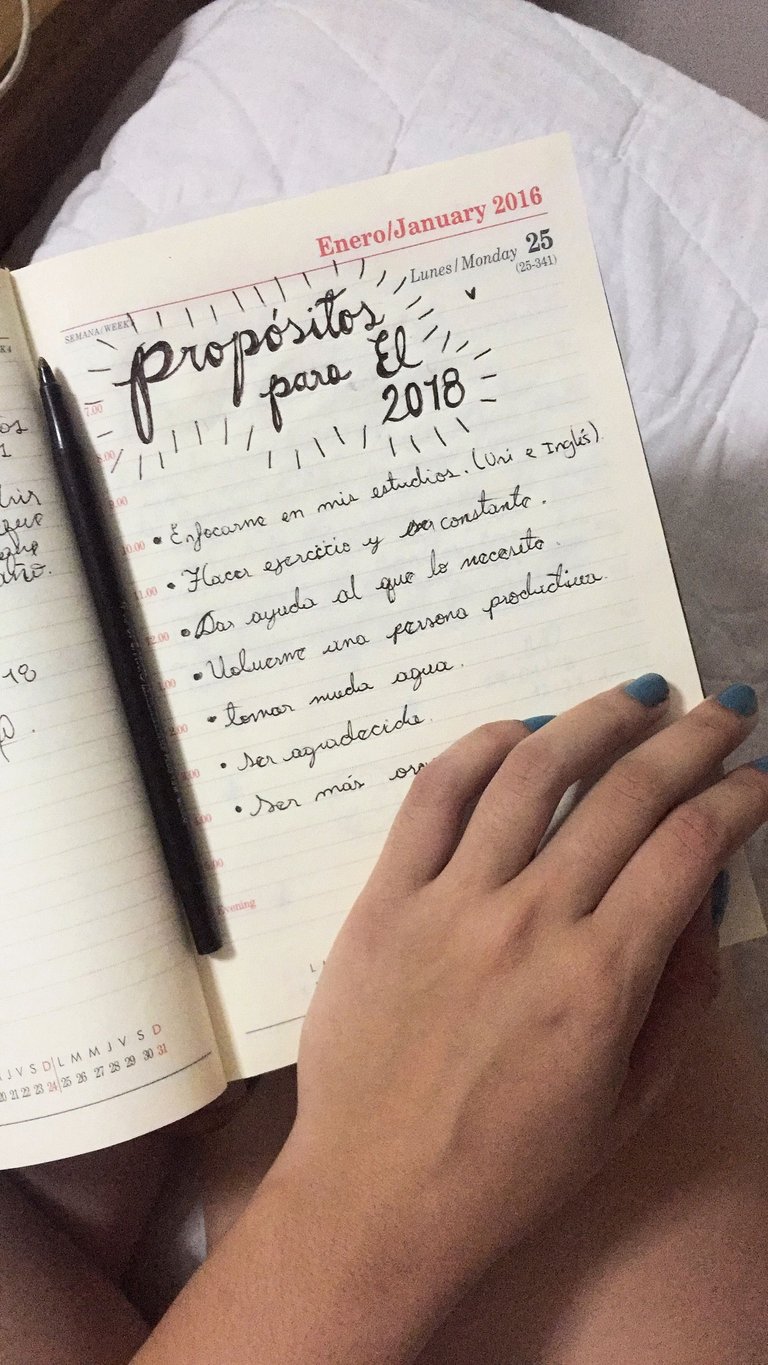 Enero/January 2016
Lunes/Monday 25
(25-341)
SEMANA/WEEK
Propósitos
para El
2018
7.00
8.00
9.00
10.00 • Enfocarme en mis estudios. (Uni e Inglés).
11.00 • Hacer ejercicio y ser constante.
12.00 • Dar ayuda al que lo necesite.
• Volverme una persona productiva.
• tomar mucha agua.
• ser agradecida.
• ser más
Evening
J V S D L M M J V S D
20 21 22 23 24 25 26 27 28 29 30 31
18